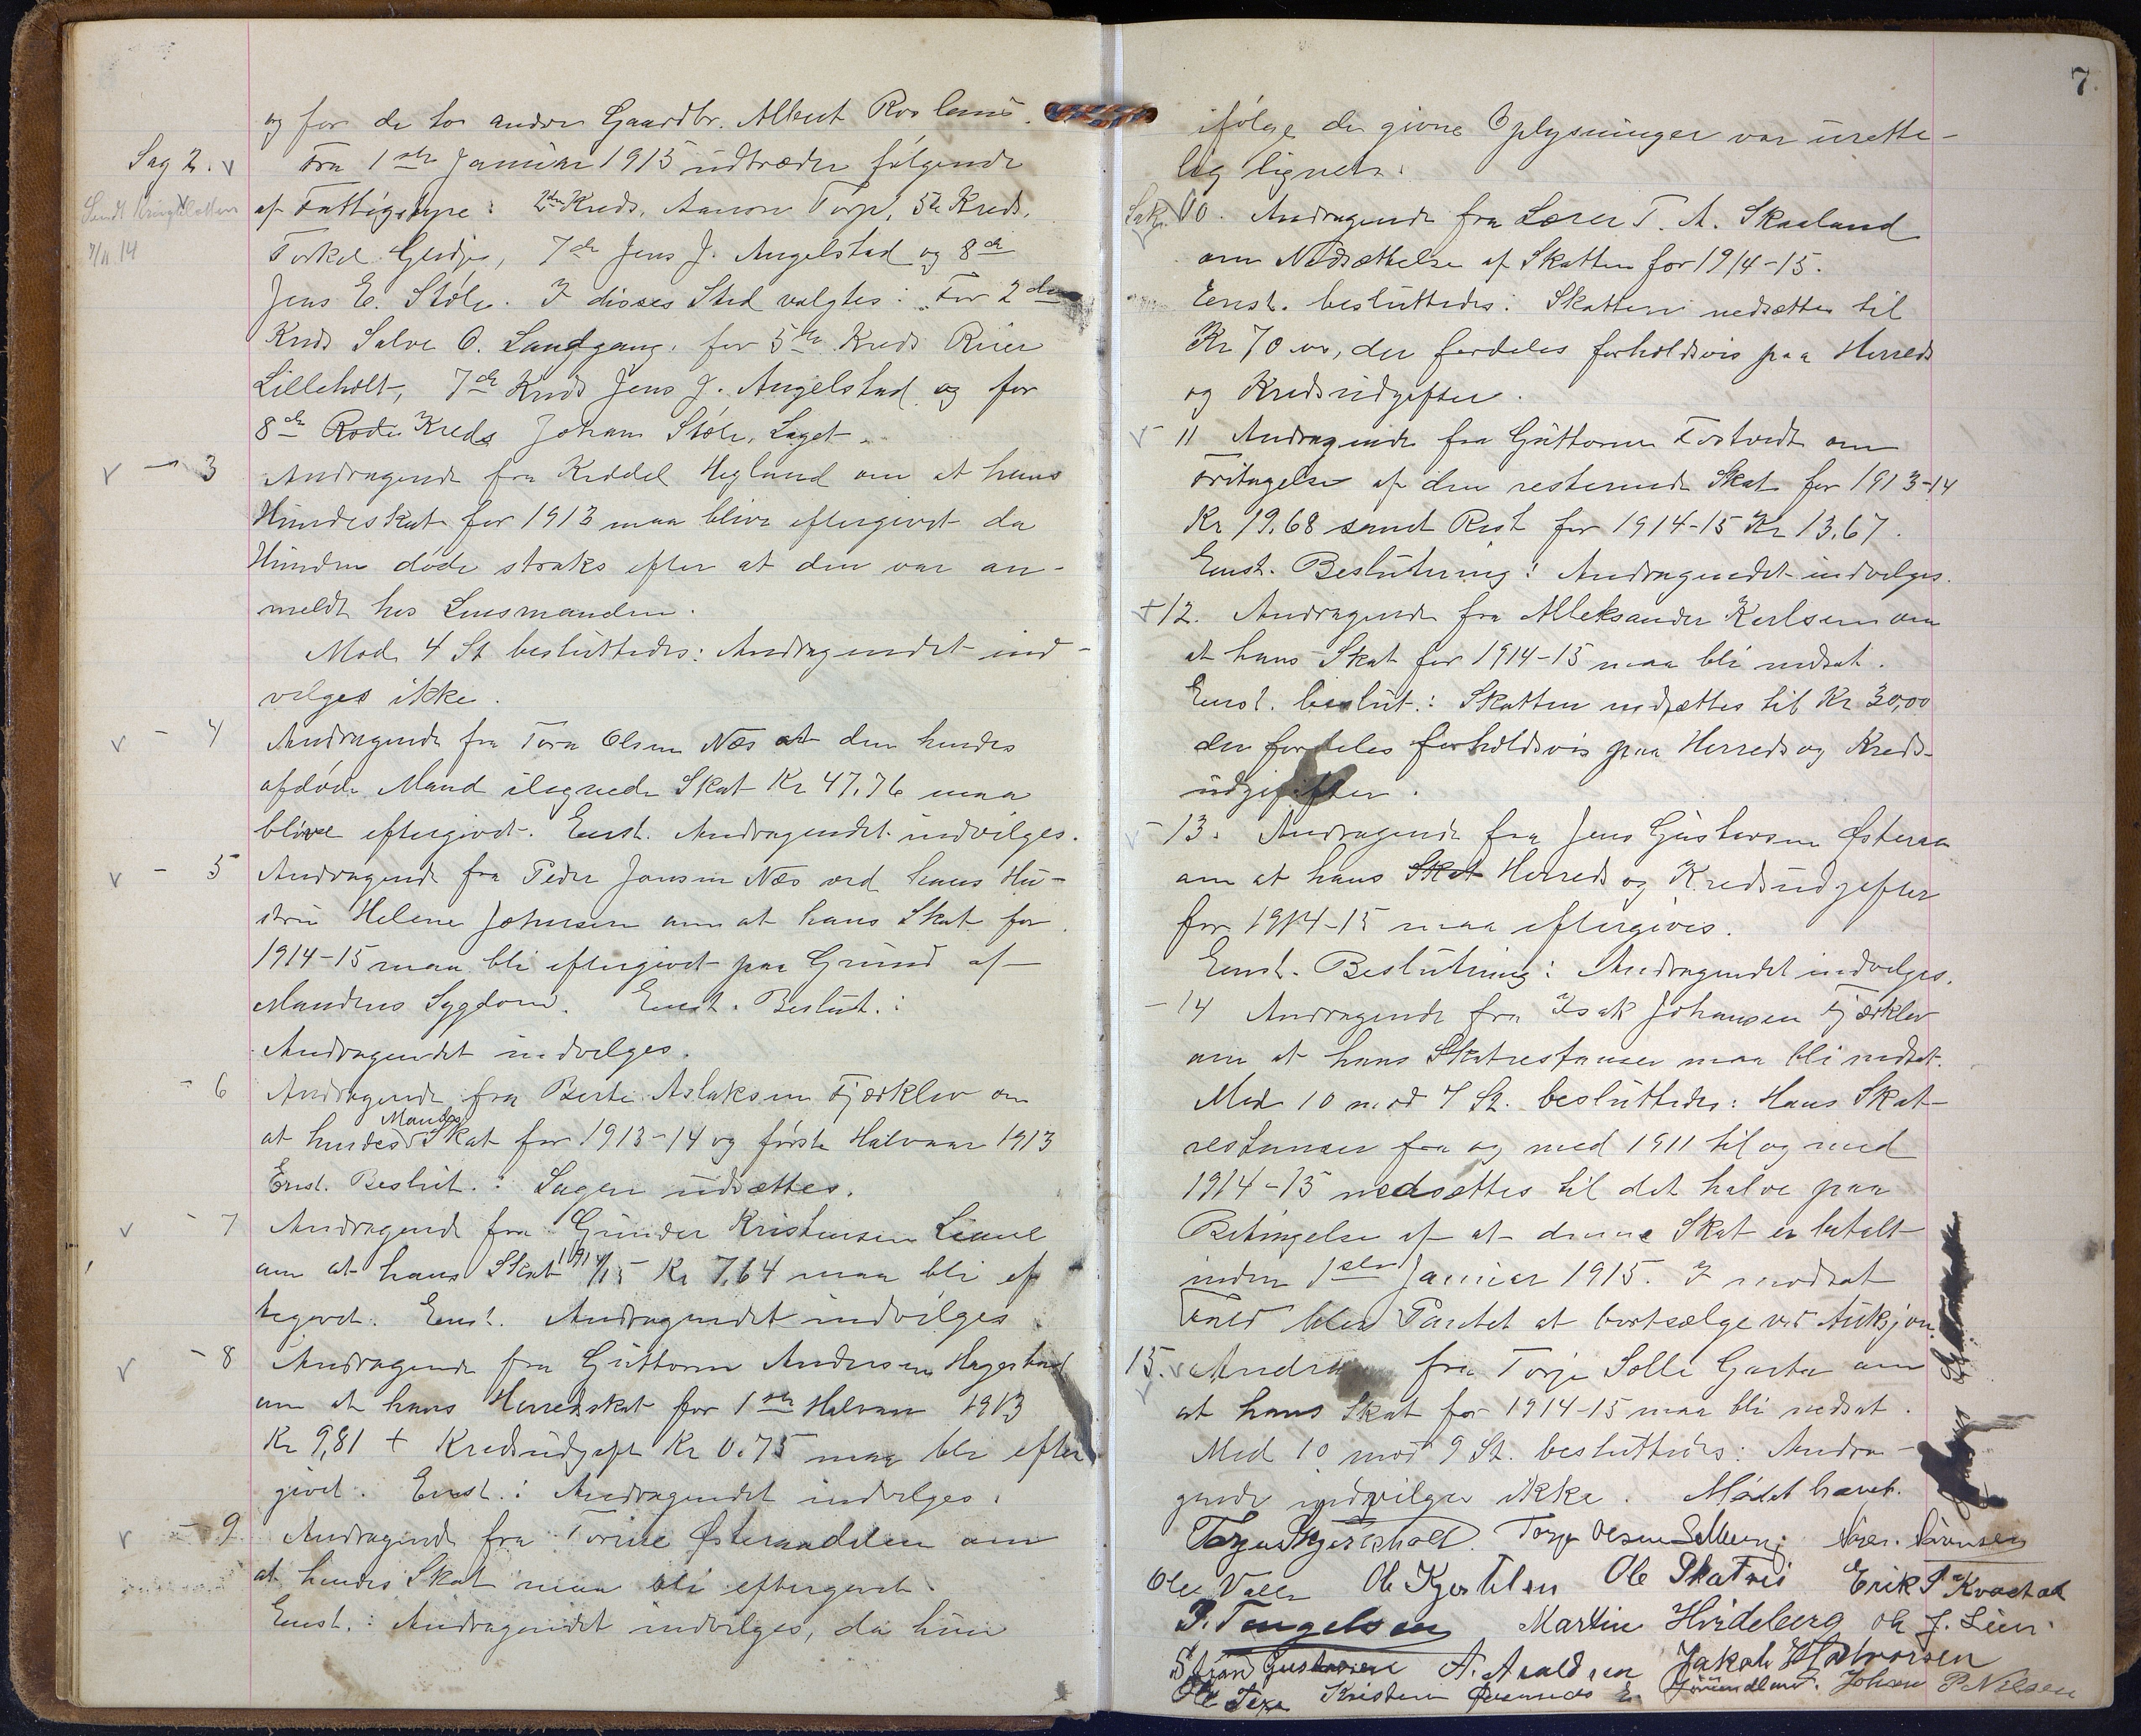 og for de to andre Gaardbr. Albert Roslands.
Sag 2. Fra 1ste Januar 1915 udtræder følgende
af Fattigstyre: 2den Kreds, Aanon Torp, 5te Kreds,
Sendt
7/11.14
Torkel Gjerdje, 7de Jens J. Angelstad og 8de
Jens E. Støle. I disses Sted valgtes: For 2den
Kreds Salve O. Landgang, for 5te Kreds Reier
Lilleholt, 7de Kreds Jens J. Angelstad og for
8de Rode Kreds Johan Støle, Laget.
- 3 Andragende fra Keddel Hegland om at hans
Hundeskat for 1913 maa blive eftergivet da
Hunden døde straks efter at den var an-
meldt hos Lensmanden.
Mod 4 St besluttedes: Andragendet ind-
vilges ikke.
- 4 Andragende fra Tora Olsen Næs at den hendes
afdøde Mand ilignede Skat Kr 47,76 maa
blive eftergivet. Enst. Andragendet indvilges.
- 5 Andragende fra Peder Jansen Næs ved hans Hu-
stru Helene Johnsen om at hans Skat for
1914-15 maa bli eftergivet paa Grund af
Mandens Sygdom. Enst. Beslut.:
Andragendet indvilges.
- 6 Andragende fra Berte Aslaksen Fjærklev om
at hendes Mandes Skat for 1913-14 og første Halvaar 1913
Enst. Beslut.: Sagen udsættes.
- 7 Andragende fra Gunder Kristensen
om at hans Skat 1914/15 Kr 7,64 maa bli ef
tegivet. Enst. Andragendet indvilges
- 8 Andragende fra Guttorm Andersen Hagestad
om at hans Herredskat for 1ste Halvaar 1913
Kr 9,81 + Kredsudgift Kr 0.75 maa bli efter
givet. Enst.: Andragendet indvilges.
- 9 Andragende fra Torine Østeraadalen om
at hendes Skat maa bli eftergivet.
Enst.: Andragendet indvilges, da hun
7.
ifølge de givne Oplysninger var urette-
lig lignet.
Sak 10. Andragende fra Lærer T. A. Skaaland
om Nedsættelse af Skatten for 1914-15.
Enst. besluttedes: Skatten nedsættes til
Kr 70 00, der fordeles forholdsvis paa Herreds
og Kredsudgifter.
11 Andragende fra Guttorm Tostvedt om
Fritagelse af den resterende Skat for 1913-14
Kr 19,68 samt Rest for 1914-15 Kr 13,67.
Enst. Beslutning: Andragendet indvilges.
+ 12. Andragende fra Alleksander Karlsen om
at hans Skat for 1914-15 maa bli nedsat.
Enst. beslut.: Skatten nedsættes til Kr 30,00
der fordeles forholdsvis paa Herreds og Kreds-
udgifter.
- 13. Andragende fra Jens Gustavsen Østeraa
om at hans Skat Herreds og Kredsudgifter
for 1914-15 maa eftergives.
Enst. Beslutning: Andragendet indvilges.
- 14 Andragende fra Isak Johansen Fjærklev
om at hans Skatrestanser maa bli nedsat.
Med 10 mod 7 St. besluttedes: Hans Skat-
restanser fra og med 1911 til og med
1914-15 nedsættes til det halve paa
Betingelse af at denne Skat er betalt
inden 1ste Januar 1915. I modsat
Fald blir Pantet at bortsælge ved Auksjon.
15. fra Torje Solli Garta om
at hans Skat for 1914-15 maa bli nedsat.
Med 10 mod 9 St. besluttedes: Andra-
gende indvilges ikke. Mødet hævet.
Torje Olsen
Ole Valle Ole Kjertelsen Ole Skatvis Erik
P. Tengelsen Martin Hvideberg Ole J. Lien
Gustavsen A. Jakob Halvorsen
Ole Kristen Johan P Nilsen